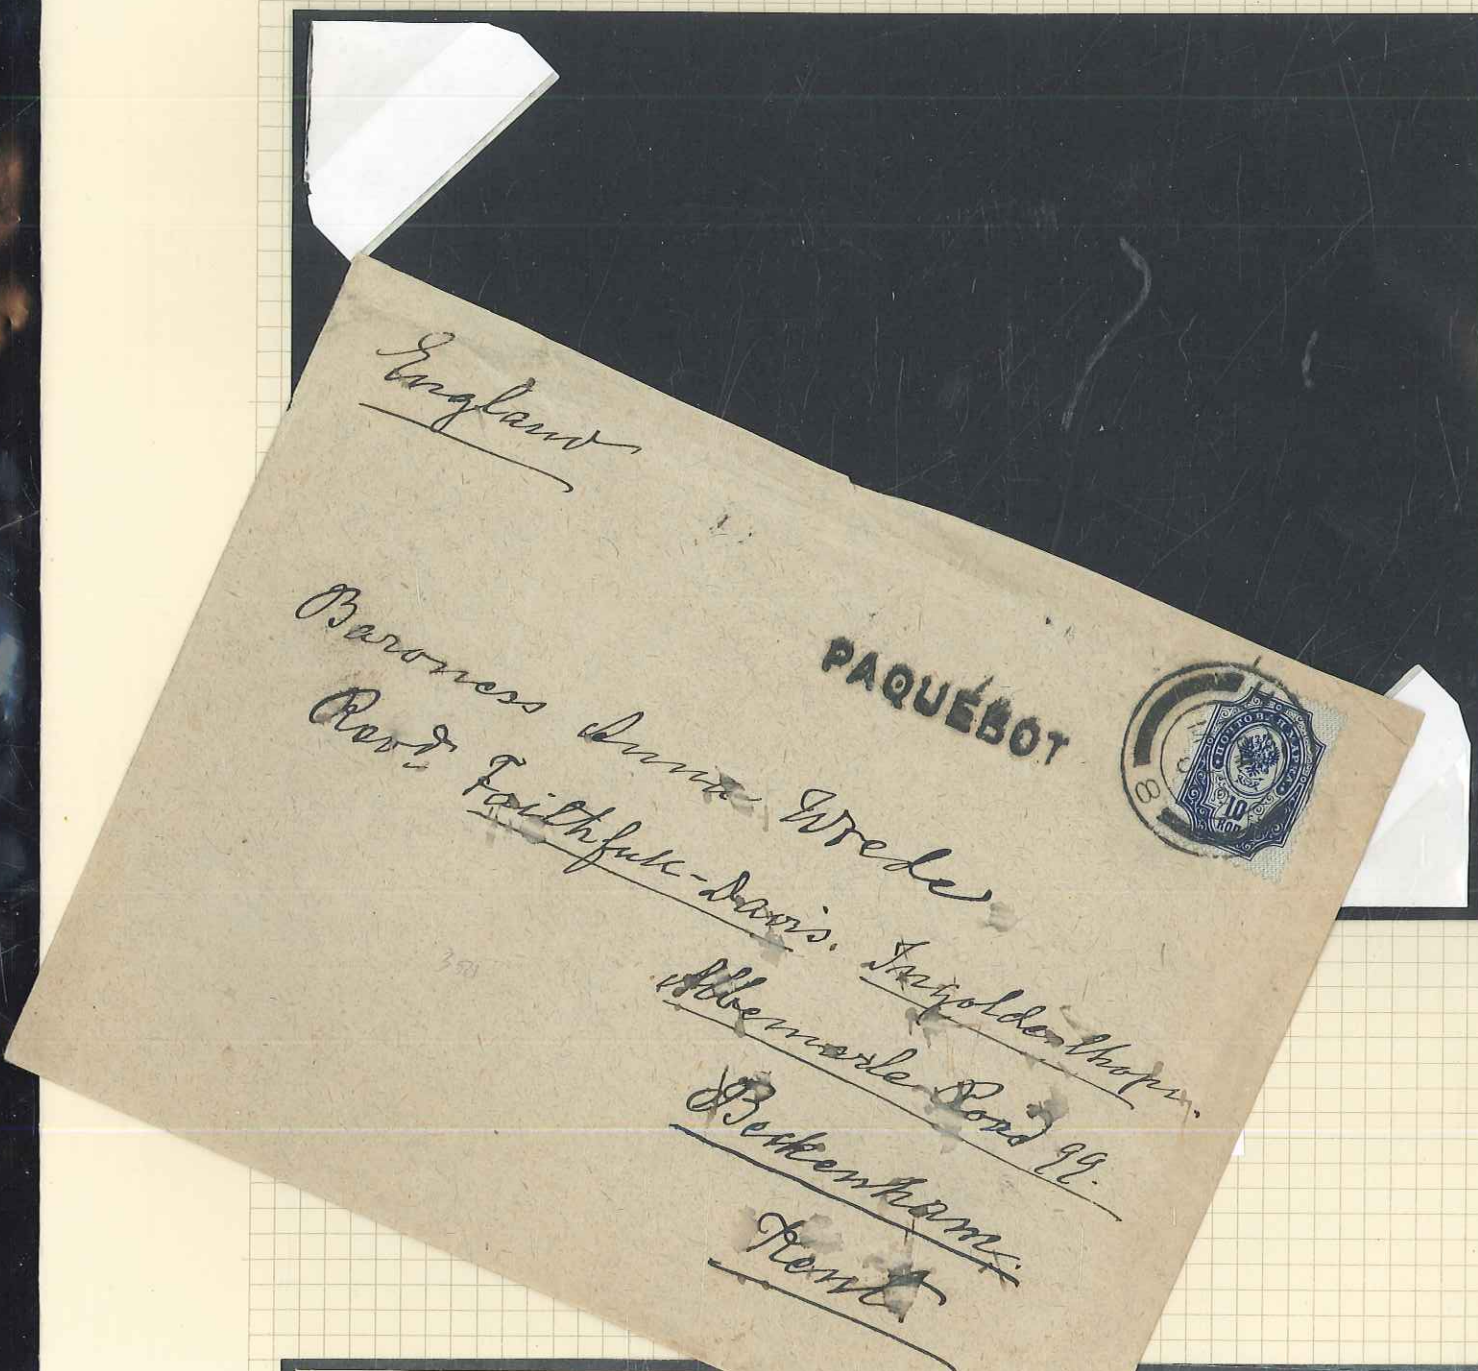 England
PAQUEBOT
8
ПОЧТОВАЯ МАРКА
10
КОП
Baroness Anna Wrede
Revd. Faithfull-Davis. Ingoldesthorpe.
Albemarle Road 99.
Beckenham
Kent